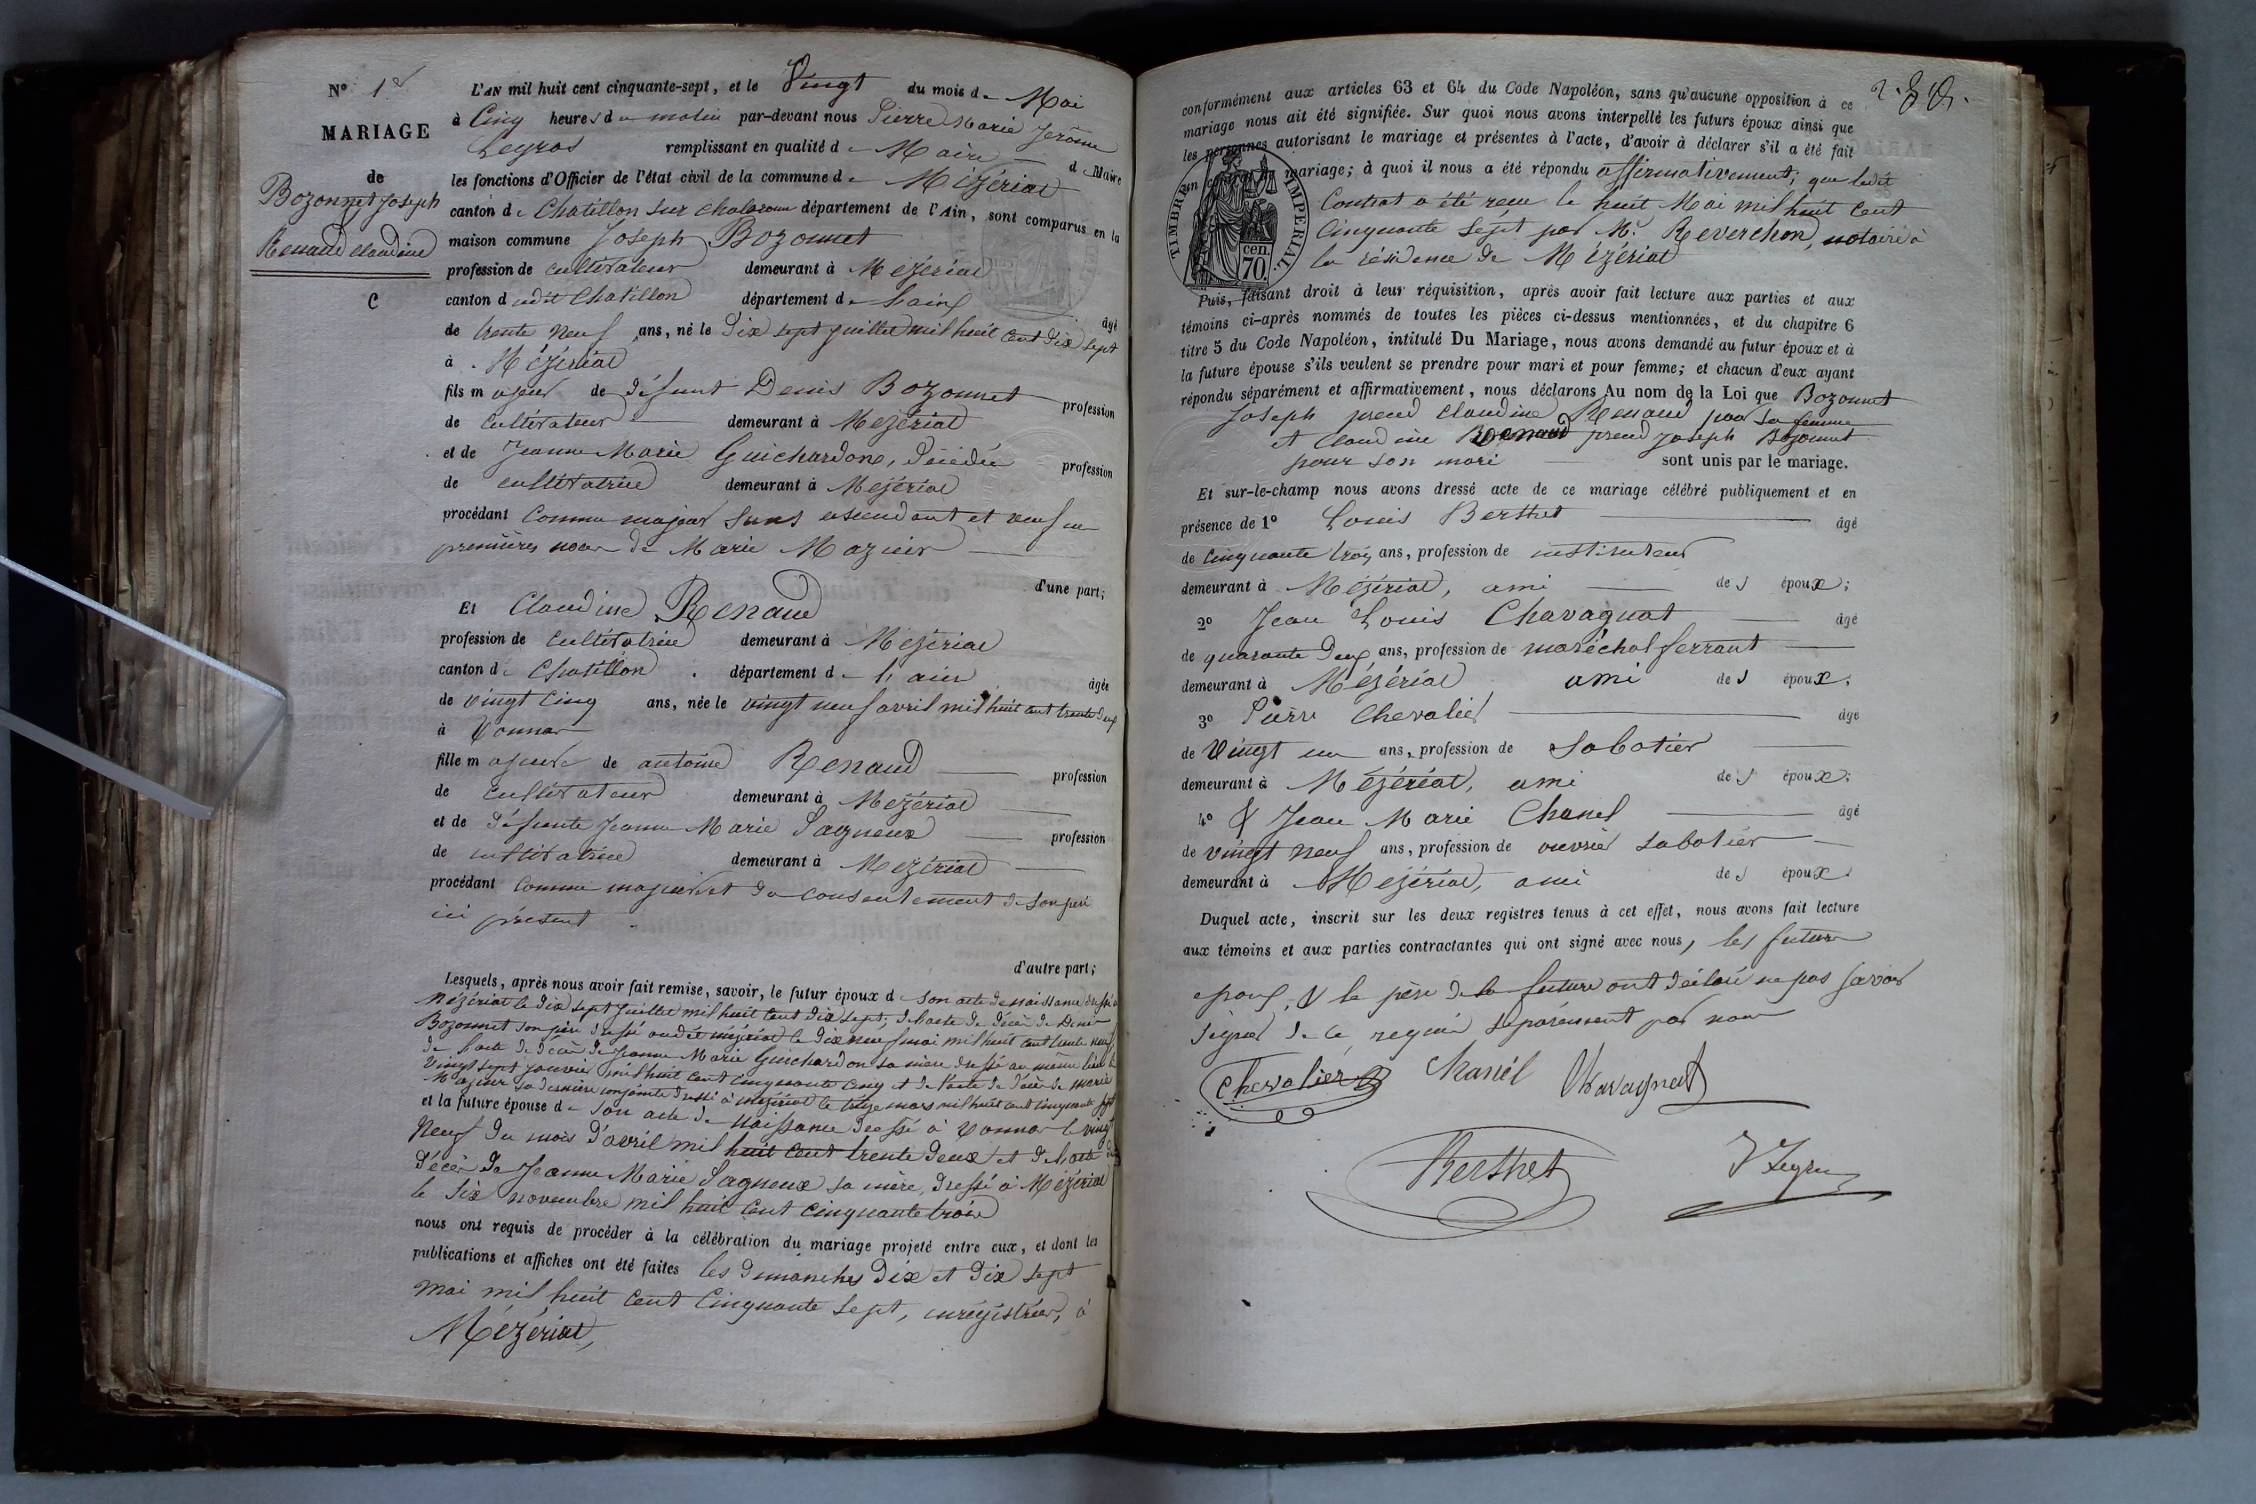 N° 1
MARIAGE
de
Bozonnet Joseph
Renaud Claudine
C
L'AN mil huit cent cinquante-sept, et le Vingt du mois de Mai
à Cinq heures du matin par-devant nous Pierre Marie Jerôme
Leyros remplissant en qualité de Maire d Maire
les fonctions d'Officier de l'état civil de la commune de Mézériat
canton de Chatillon sur chalaronne département de l'Ain, sont comparus en la
maison commune Joseph Bozonnet
profession de cultivateur demeurant à Mézériat
canton dudit Chatillon département de l'ain âgé
de trente neuf ans, né le dix sept juillet mil huit cent dix sept
à Mézériat
fils majeur de défunt Denis Bozonnet profession
de cultivateur demeurant à Mezériat
et de Jeanne Marie Guichardon, décédée profession
de cultivatrice demeurant à Mezériat
procédant comme majeur sans ascendant et veuf en
premières noces de Marie Mazuir
d'une part;
Et Claudine Renaud
profession de cultivatrice demeurant à Mezériat
canton de Chatillon département de l'ain âgée
de vingt cinq ans, née le vingt neuf avril mil huit cent trente deux
à Vonnas
fille majeure de antoine Renaud profession
de cultivateur demeurant à Mezériat
et de défunte Jeanne Marie Pagneux profession
de cultivatrice demeurant à Mezériat
procédant comme majeure et du consentement de son père
ici présent
d'autre part;
Lesquels, après nous avoir fait remise, savoir, le futur époux de son acte de naissance dressé à
Mézériat le dix sept juillet mil huit cent dix sept; de l'acte de décès de Denis
Bozonnet son père dressé audit mézériat le dix neuf mai mil huit cent trente neuf
de l'acte de décès de Jeanne Marie Guichardon sa mère dressé au même lieu le
vingt sept janvier mil huit cent cinquante cinq et de l'acte de décès de marie
Mazuir sa dernière conjointe dressé à mézériat le treize mars mil huit cent cinquante sept
et la future épouse de son acte de naissance dressé à Vonnas le vingt
neuf du mois d'avril mil huit cent trente deux et de l'acte de
décès de Jeanne Marie Pagneux sa mère, dressé à Mézériat
le six novembre mil huit cent cinquante trois
nous ont requis de procéder à la célébration du mariage projeté entre eux, et dont les
publications et affiches ont été faites les dimanches dix et dix sept
mai mil huit cent cinquante sept, enregistrées, à
Mézériat,
conformément aux articles 63 et 64 du Code Napoléon, sans qu'aucune opposition à ce
mariage nous ait été signifiée. Sur quoi nous avons interpellé les futurs époux ainsi que
les personnes autorisant le mariage et présentes à l'acte, d'avoir à déclarer s'il a été fait
un contrat de mariage; à quoi il nous a été répondu affirmativement; que ledit
Contrat a été recu le huit Mai mil huit cent
cinquante sept par Mr. Reverchon, notaire à
la résidence de Mézériat
TIMBRE IMPERIAL
70 cen.
Puis, faisant droit à leur réquisition, après avoir fait lecture aux parties et aux
témoins ci-après nommés de toutes les pièces ci-dessus mentionnées, et du chapitre 6
titre 5 du Code Napoléon, intitulé Du Mariage, nous avons demandé au futur époux et à
la future épouse s'ils veulent se prendre pour mari et pour femme; et chacun d'eux ayant
répondu séparément et affirmativement, nous déclarons Au nom de la Loi que Bozonnet
Joseph prend claudine Renaud pour sa femme
et Claudine Renaud prend joseph Bozonnet
pour son mari sont unis par le mariage.
Et sur-le-champ nous avons dressé acte de ce mariage célébré publiquement et en
présence de 1° Louis Berthet âgé
de cinquante trois ans, profession de instituteur
demeurant à Mézériat, ami des époux;
2° Jean Louis Chavagnat âgé
de quarante deux ans, profession de maréchal ferrant
demeurant à Mézériat ami des époux;
3° Pierre Chevalier âgé
de Vingt un ans, profession de Sabotier
demeurant à Mézériat, ami des époux;
4° & Jean Marie Chanel âgé
de vingt neuf ans, profession de ouvrier sabotier
demeurant à Mezériat, ami des époux.
Duquel acte, inscrit sur les deux registres tenus à cet effet, nous avons fait lecture
aux témoins et aux parties contractantes qui ont signé avec nous, les futurs
epoux, & le père de la future ont déclaré ne pas savoir
signer de ce requis séparément par nous
Chevalier Chanel Chavagnat
Berthet